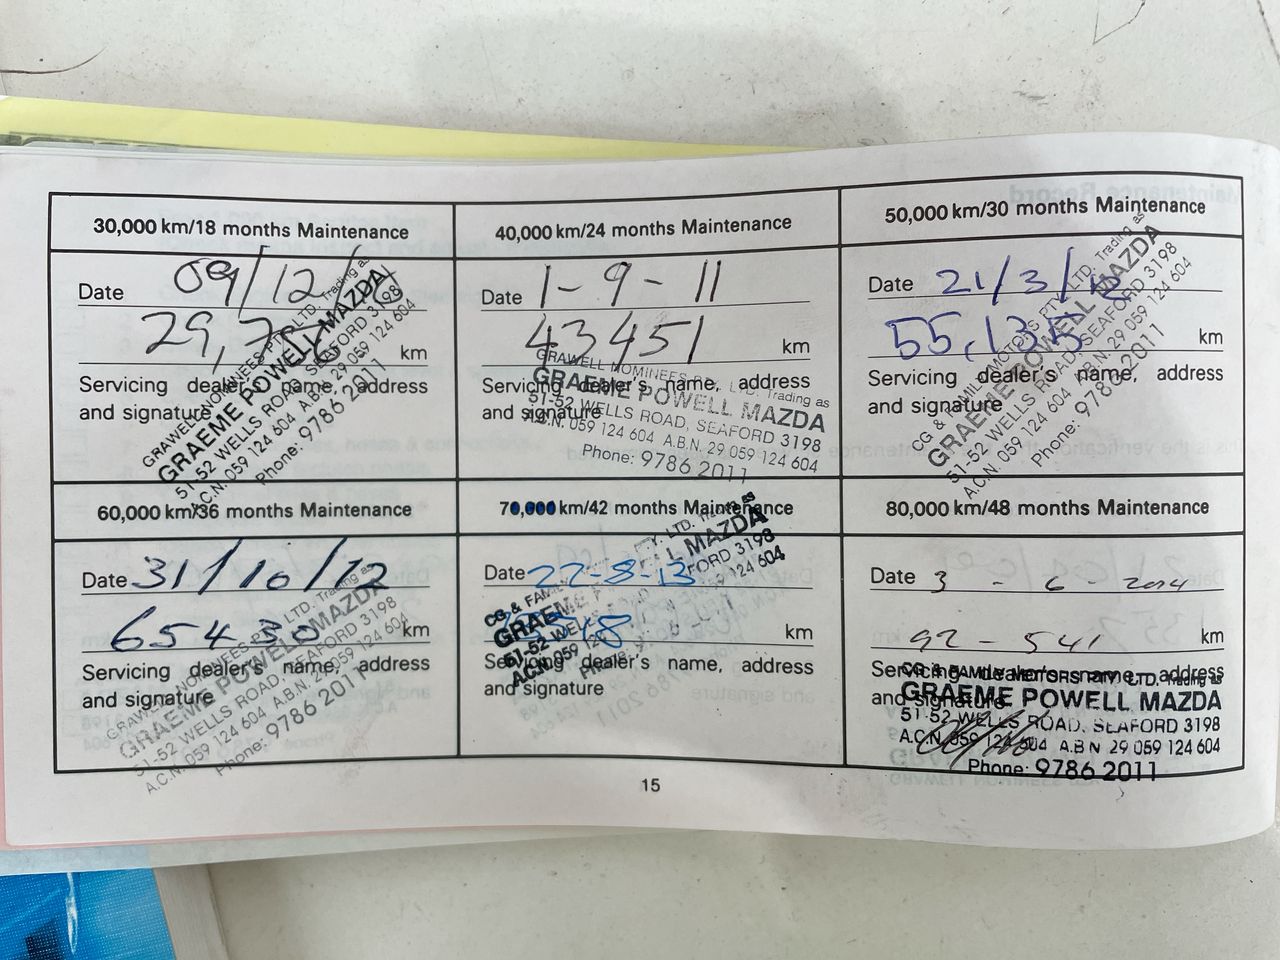 30,000 km/18 months Maintenance
Date 09/12/10
29,7 km
Servicing dealer's name, address
and signature
GRAWELL NOMINEES PTY. LTD. Trading as
GRAEME POWELL MAZDA
51-52 WELLS ROAD, SEAFORD 3198
A.C.N. 059 124 604 A.B.N. 29 059 124 604
Phone: 9786 2011
40,000 km/24 months Maintenance
Date 1-9-11
43451 km
Servicing dealer's name, address
and signature
GRAWELL NOMINEES PTY. LTD. Trading as
GRAEME POWELL MAZDA
51-52 WELLS ROAD, SEAFORD 3198
A.C.N. 059 124 604 A.B.N. 29 059 124 604
Phone: 9786 2011
50,000 km/30 months Maintenance
Date 21/3/
55,135 km
Servicing dealer's name, address
and signature
CG & FAMILY MOTORS PTY. LTD. Trading as
GRAEME POWELL MAZDA
51-52 WELLS ROAD, SEAFORD 3198
A.C.N. 059 124 604 A.B.N. 29 059 124 604
Phone: 9786 2011
60,000 km/36 months Maintenance
Date 31/10/12
65430 km
Servicing dealer's name, address
and signature
GRAWELL NOMINEES PTY. LTD. Trading as
GRAEME POWELL MAZDA
51-52 WELLS ROAD, SEAFORD 3198
A.C.N. 059 124 604 A.B.N. 29 059 124 604
Phone: 9786 2011
70,000 km/42 months Maintenance
Date 22-8-13
km
Servicing dealer's name, address
and signature
CG & FAMILY LTD. Trading as
GRAEME MAZDA
51-52 WELLS SEAFORD 3198
A.C.N. 059 124 604
80,000 km/48 months Maintenance
Date 3 - 6 - 2014
92-541 km
Servicing dealer's name, address
and signature
CG & FAMILY MOTORS PTY LTD. Trading as
GRAEME POWELL MAZDA
51-52 WELLS ROAD, SEAFORD 3198
A.C.N. 059 124 604 A.B.N 29 059 124 604
Phone: 9786 2011
15